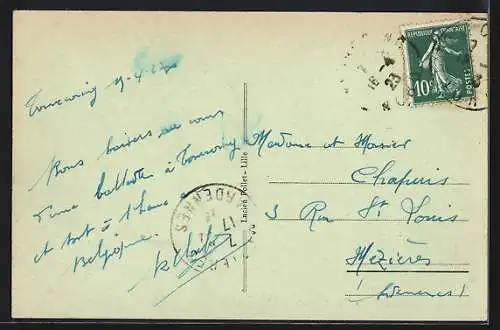 Tourcoing 4-4-23
Bons baisers au cours
d'une ballade à Tourcoing
et tout à l'heure
Belgique.
Lucien Pollet - Lille
RÉPUBLIQUE FRANÇAISE
10c
POSTES
16
4
23
ARDENNES
17
Madame et Monsieur
Chapuis
3 Rue St Louis
Mézières
(Ardennes)